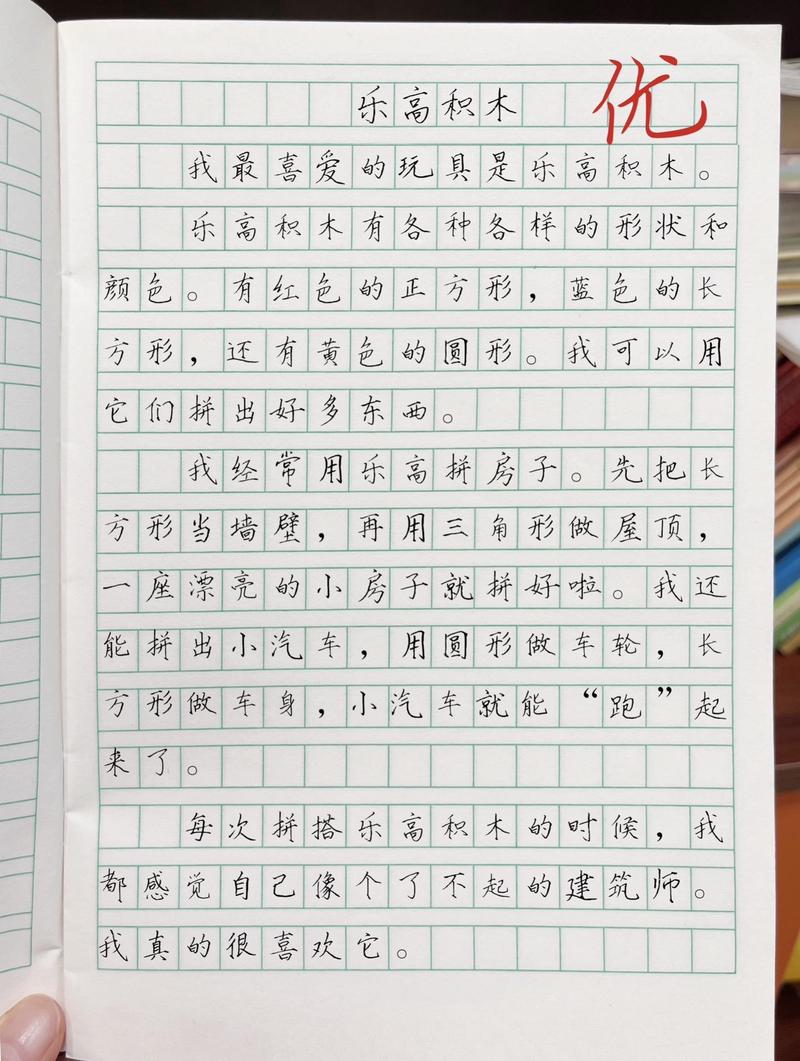 优
乐高积木
我最喜爱的玩具是乐高积木。
乐高积木有各种各样的形状和
颜色。有红色的正方形，蓝色的长
方形，还有黄色的圆形。我可以用
它们拼出好多东西。
我经常用乐高拼房子。先把长
方形当墙壁，再用三角形做屋顶，
一座漂亮的小房子就拼好啦。我还
能拼出小汽车，用圆形做车轮，长
方形做车身，小汽车就能“跑”起
来了。
每次拼搭乐高积木的时候，我
都感觉自己像个了不起的建筑师。
我真的很喜欢它。